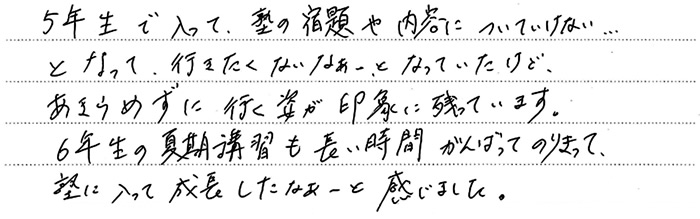 5年生で入って、塾の宿題や内容についていけない…
となって、行きたくないなぁー、となっていたけど、
あきらめずに行く姿が印象に残っています。
6年生の夏期講習も長い時間がんばってのりきって、
塾に入って成長したなぁーと感じました。